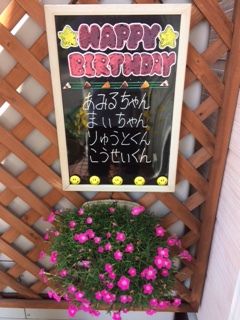 HAPPY
BIRTHDAY
あみるちゃん
まいちゃん
りゅうとくん
こうせいくん